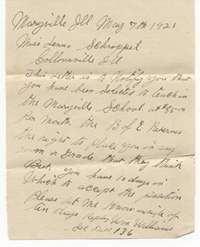 Maryville Ill May 7th 1921
Miss Leona Schroppel
Collinsville Ill
This letter is to Notify you that
you have been Selected to teach in
the Maryville School at
Per Month the B of E Reserves
the right to place you in any
room or Grade that they think
Best you have 10 days in
Which to accept the Position
Please let me know inside of
ten days reply Wm Williams
136